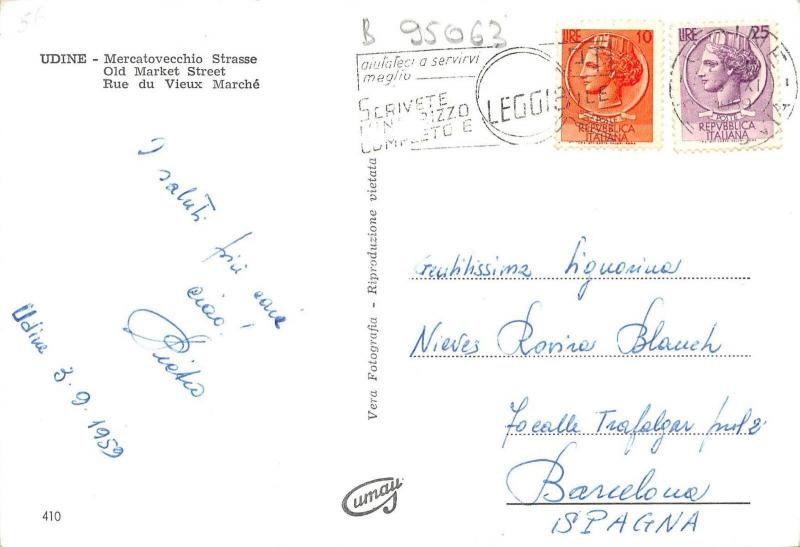 56
UDINE - Mercatovecchio Strasse
Old Market Street
Rue du Vieux Marché
B 95063
aiutateci a servirvi
meglio
SCRIVETE
INDIRIZZO
COMPLETO E
LEGGIBILE
LIRE 10
POSTE
REPVBBLICA
ITALIANA
LIRE 25
POSTE
REPVBBLICA
ITALIANA
I saluti
più cari
ciao!
Udine 3.9.1959
Vera Fotografia - Riproduzione vietata
Gentilissima Signorina
Nieves Rovira Blanch
Trafalgar
Barcelona
SPAGNA
Cumau
410